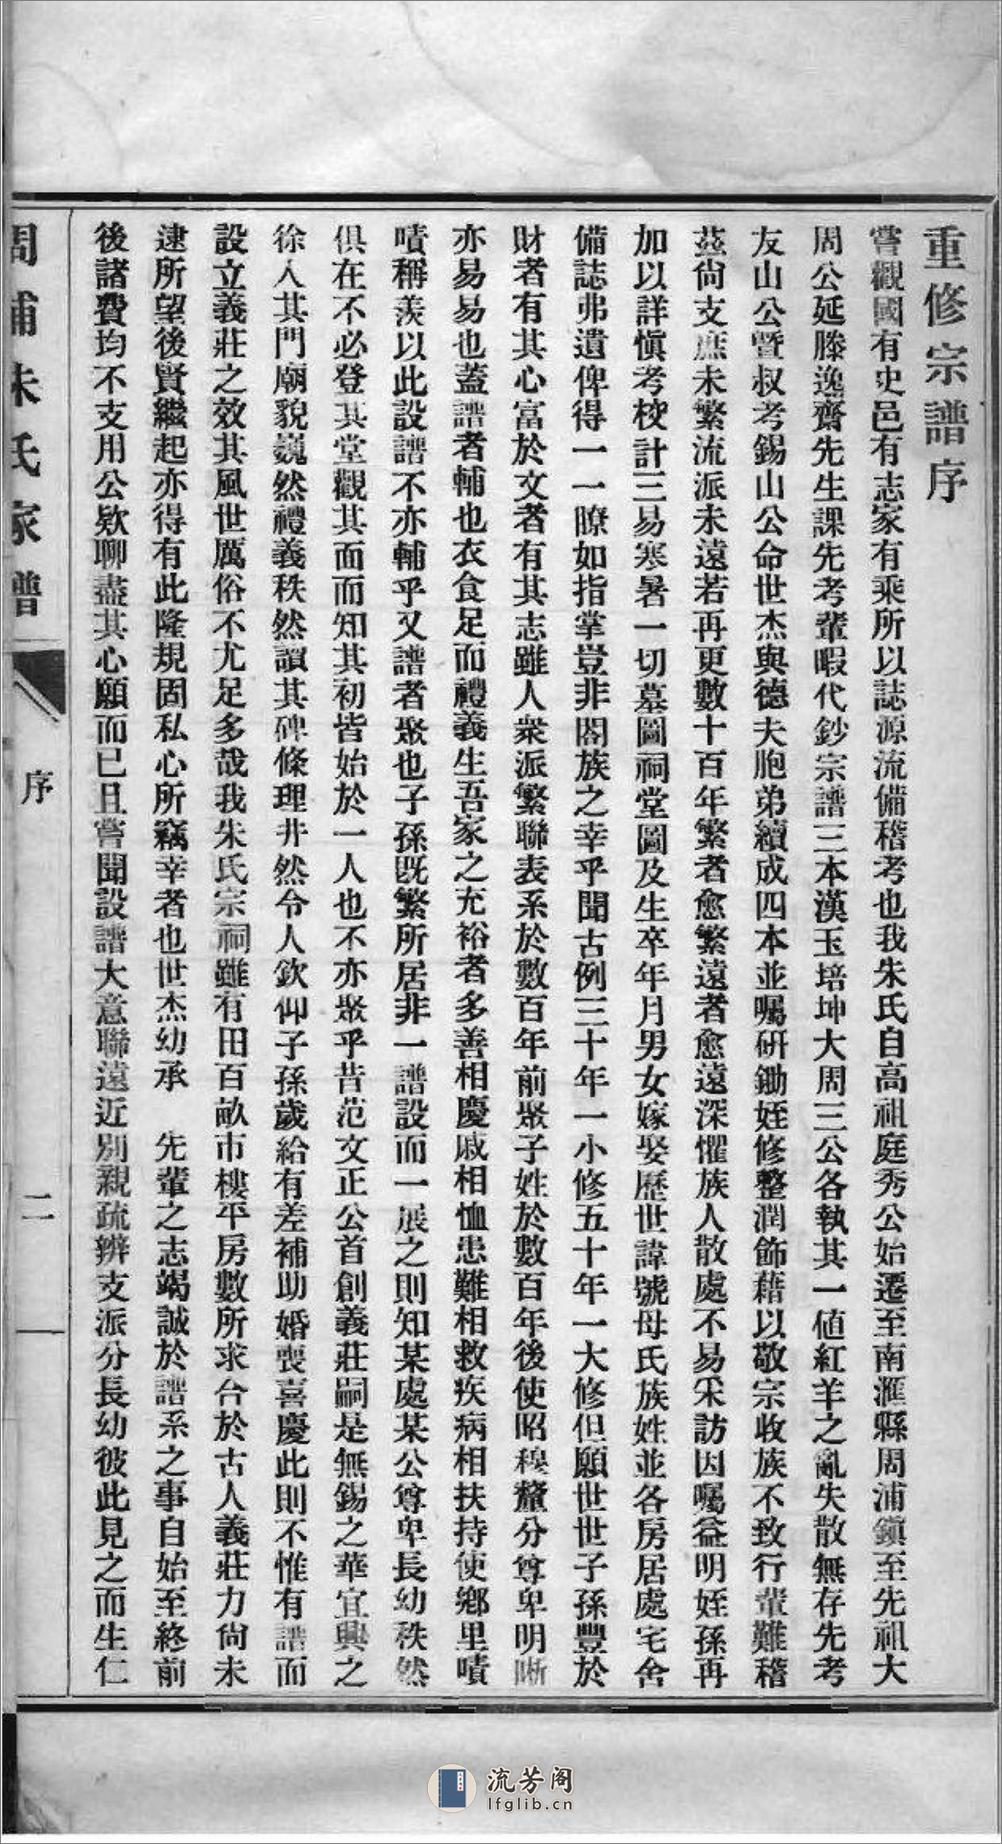 重修宗譜序
嘗觀國有史邑有志家有乘所以誌源流備稽考也我朱氏自高祖庭秀公始遷至南滙縣周浦鎭至先祖大
周公延滕逸齋先生課先考輩暇代鈔宗譜三本漢玉培坤大周三公各執其一値紅羊之亂失散無存先考
友山公曁叔考錫山公命世杰與德夫胞弟續成四本並囑硏鋤姪修整潤飾藉以敬宗收族不致行輩難稽
茲尙支庶未繁流派未遠若再更數十百年繁者愈繁遠者愈遠深懼族人散處不易采訪因囑益明姪孫再
加以詳愼考校計三易寒暑一切墓圖祠堂圖及生卒年月男女嫁娶歷世諱號母氏族姓並各房居處宅舍
備誌弗遺俾得一一瞭如指掌豈非閤族之幸乎聞古例三十年一小修五十年一大修但願世世子孫豐於
財者有其心富於文者有其志雖人衆派繁聯表系於數百年前聚子姓於數百年後使昭穆釐分尊卑明晰
亦易易也蓋譜者輔也衣食足而禮義生吾家之充裕者多善相慶戚相恤患難相救疾病相扶持使鄕里嘖
嘖稱羨以此設譜不亦輔乎又譜者聚也子孫旣繁所居非一譜設而一展之則知某處某公尊卑長幼秩然
俱在不必登其堂觀其面而知其初皆始於一人也不亦聚乎昔范文正公首創義莊嗣是無錫之華宜興之
徐入其門廟貌巍然禮義秩然讀其碑條理井然令人欽仰子孫歲給有差補助婚喪喜慶此則不惟有譜而
設立義莊之效其風世厲俗不尤足多哉我朱氏宗祠雖有田百畝市樓平房數所求合於古人義莊力尙未
逮所望後賢繼起亦得有此隆規固私心所竊幸者也世杰幼承　先輩之志竭誠於譜系之事自始至終前
後諸費均不支用公欵聊盡其心願而已且嘗聞設譜大意聯遠近別親疏辨支派分長幼彼此見之而生仁
周浦朱氏家譜
序
二
流芳阁
lfglib.cn